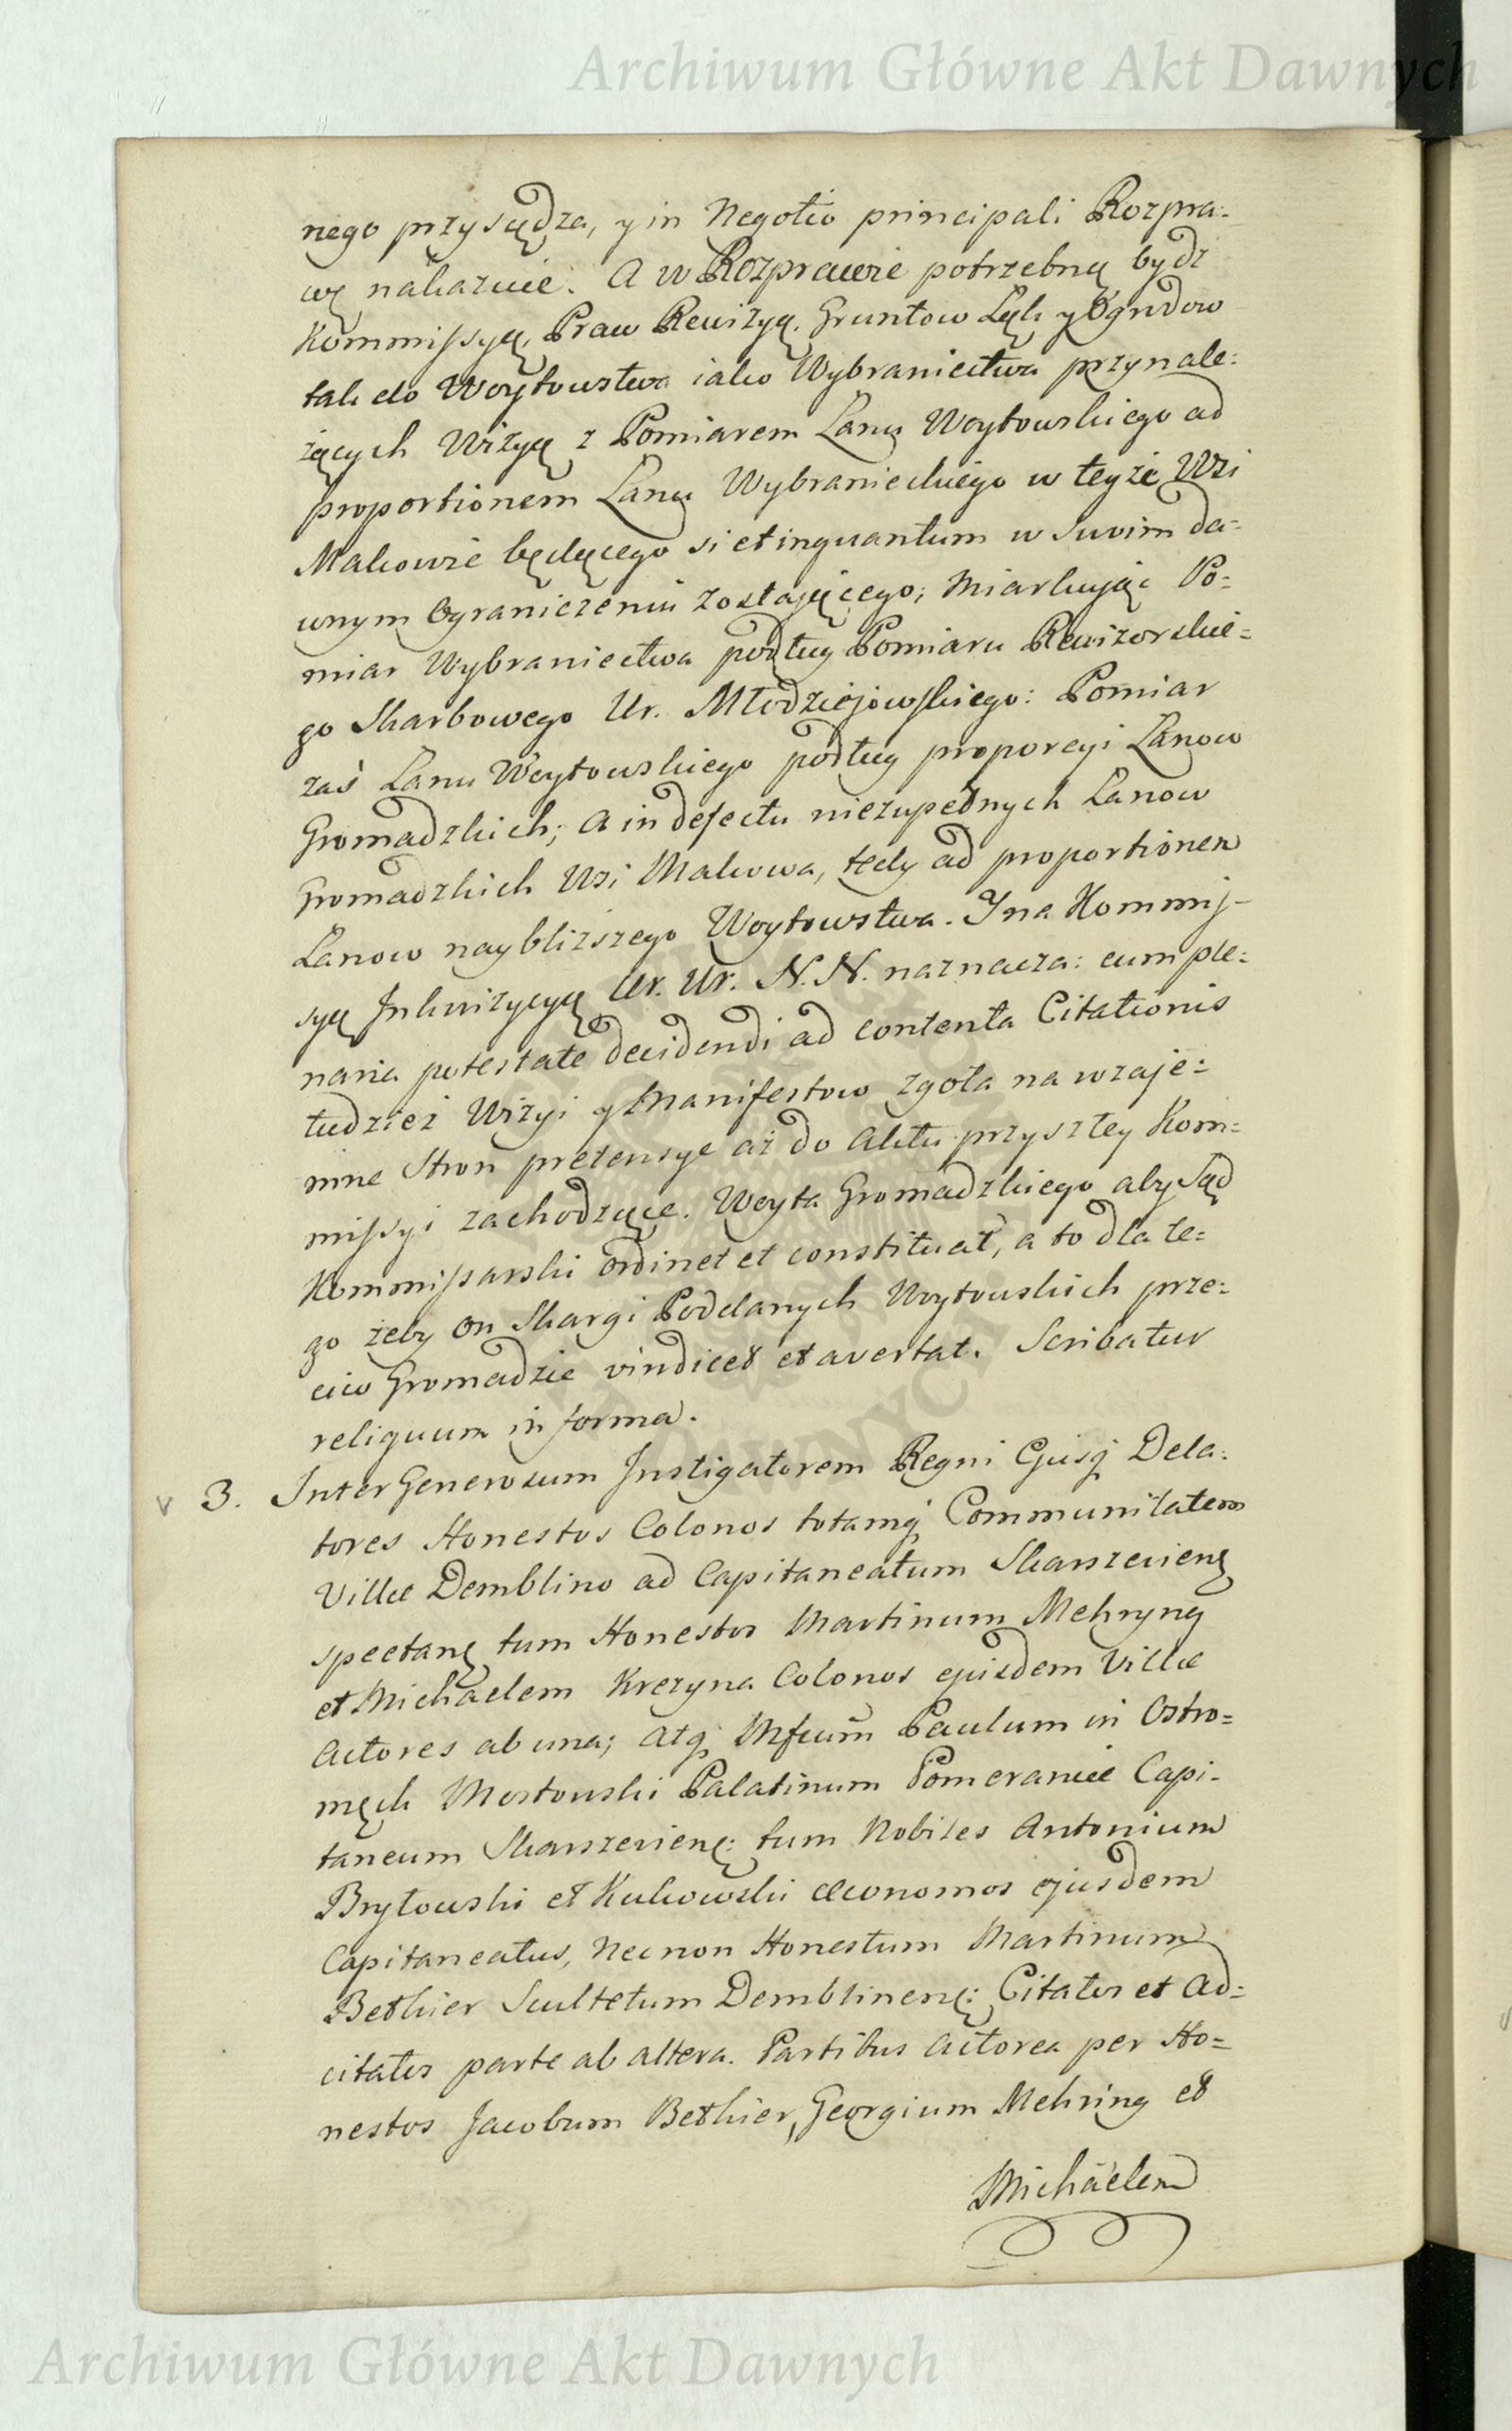 Archiwum Główne Akt Dawnych
nego przysądza, y in Negotio principali Rozpra:
wę nakazuie. A w Rozprawie potrzebną bydz
Kommissyą, Praw Rewizyą, Gruntow Łąk y Ogrodow
tak do Woytowstwa iako Wybraniectwa przynale:
żących Wizyą z Pomiarem Łanu Woytowskiego ad
proportionem Łanu Wybranieckiego w teyże Wsi
Makowie będącego si et inquantum w swoim da:
wnym Ograniczeniu zostającego; Miarkując Po:
miar Wybraniectwa podług Pomiaru Rewizorskie=
go Skarbowego Ur. Młodziejowskiego: Pomiar
zaś Łanu Woytowskiego podług proporcyi Łanow
Gromadzkich; a in defectu niezupełnych Łanow
Gromadzkich Wsi Makowa, tedy ad proportionem
Łanow naybliższego Woytowstwa. Y na Kommis-
syą Inkwizycyą Ur. Ur. N. N. naznacza: cum ple:
naria potestate decidendi ad contenta Citationis
tudzież Wizyi y Manifestow zgoła na wzaje:
mne Stron pretensye aż do Aktu przyszłey Kom:
missyi zachodzące. Woyta Gromadzkiego aby Sąd
Kommissarski ordinet et constituat, a to dla te:
go żeby on Skargi Poddanych Woytowskich prze:
ciw Gromadzie vindicet et avertat. Scribatur
reliquum in forma.
v 3. Inter Generosum Instigatorem Regni Ejusq Dela:
tores Honestos Colonos totamq Communitatem
Villæ Demblino ad Capitaneatum Skarszeviens
spectans tum Honestos Martinum Mehryng
et Michaelem Krezyna Colonos ejusdem Villæ
Actores ab una; atq Mfcum Paulum in Ostro=
męck Mostowski Palatinum Pomeraniæ Capi:
taneum Skarszeviens: tum Nobiles Antonium
Brytowski et Kukowski œconomos ejusdem
Capitaneatus, Necnon Honestum Martinum
Bethier Scultetum Demblinens: Citatos et Ad=
citatos parte ab altera. Partibus Actorea per Ho=
nestos Jacobum Bethier, Georgium Mehring et
Michaelem
Archiwum Główne Akt Dawnych